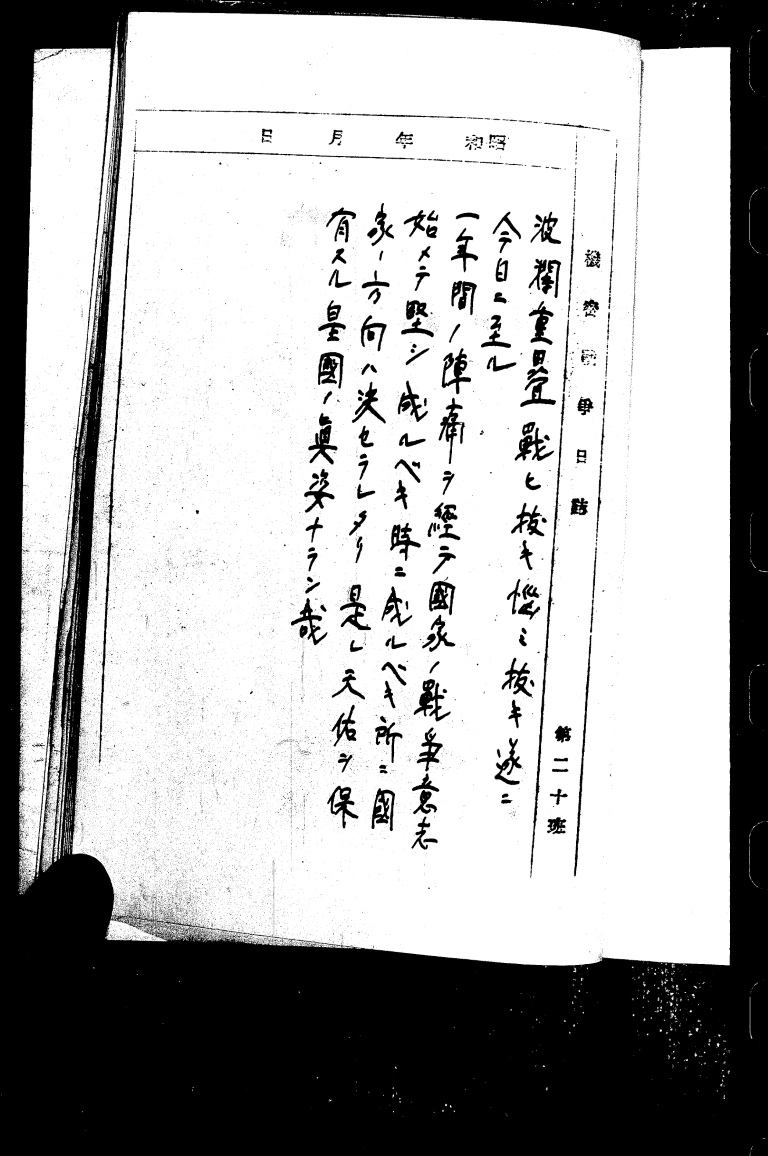 機密戰爭日誌 第二十班
昭和 年 月 日
波瀾重畳戰ヒ抜キ惱ミ抜キ遂ニ
今日ニ至ル
一年間ノ陣痛ヲ經テ國家ノ戰爭意志
始メテ堅シ成ルベキ時ニ成ルベキ所ニ國
家ノ方向ハ決セラレタリ是レ天佑ヲ保
有スル皇國ノ眞姿ナラン哉